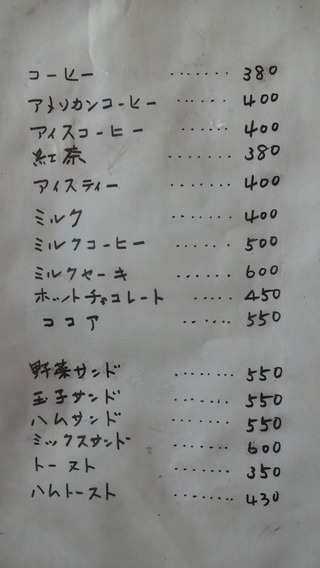 コーヒー ……. 380
アメリカンコーヒー …... 400
アイスコーヒー ……. 400
紅茶 ……. 380
アイスティー ……. 400
ミルク ……. 400
ミルクコーヒー ……. 500
ミルクセーキ …... 600
ホットチョコレート ….. 450
ココア …... 550
野菜サンド …….. 550
玉子サンド …….. 550
ハムサンド …….. 550
ミックスサンド …….. 600
トースト …….. 350
ハムトースト …….. 430